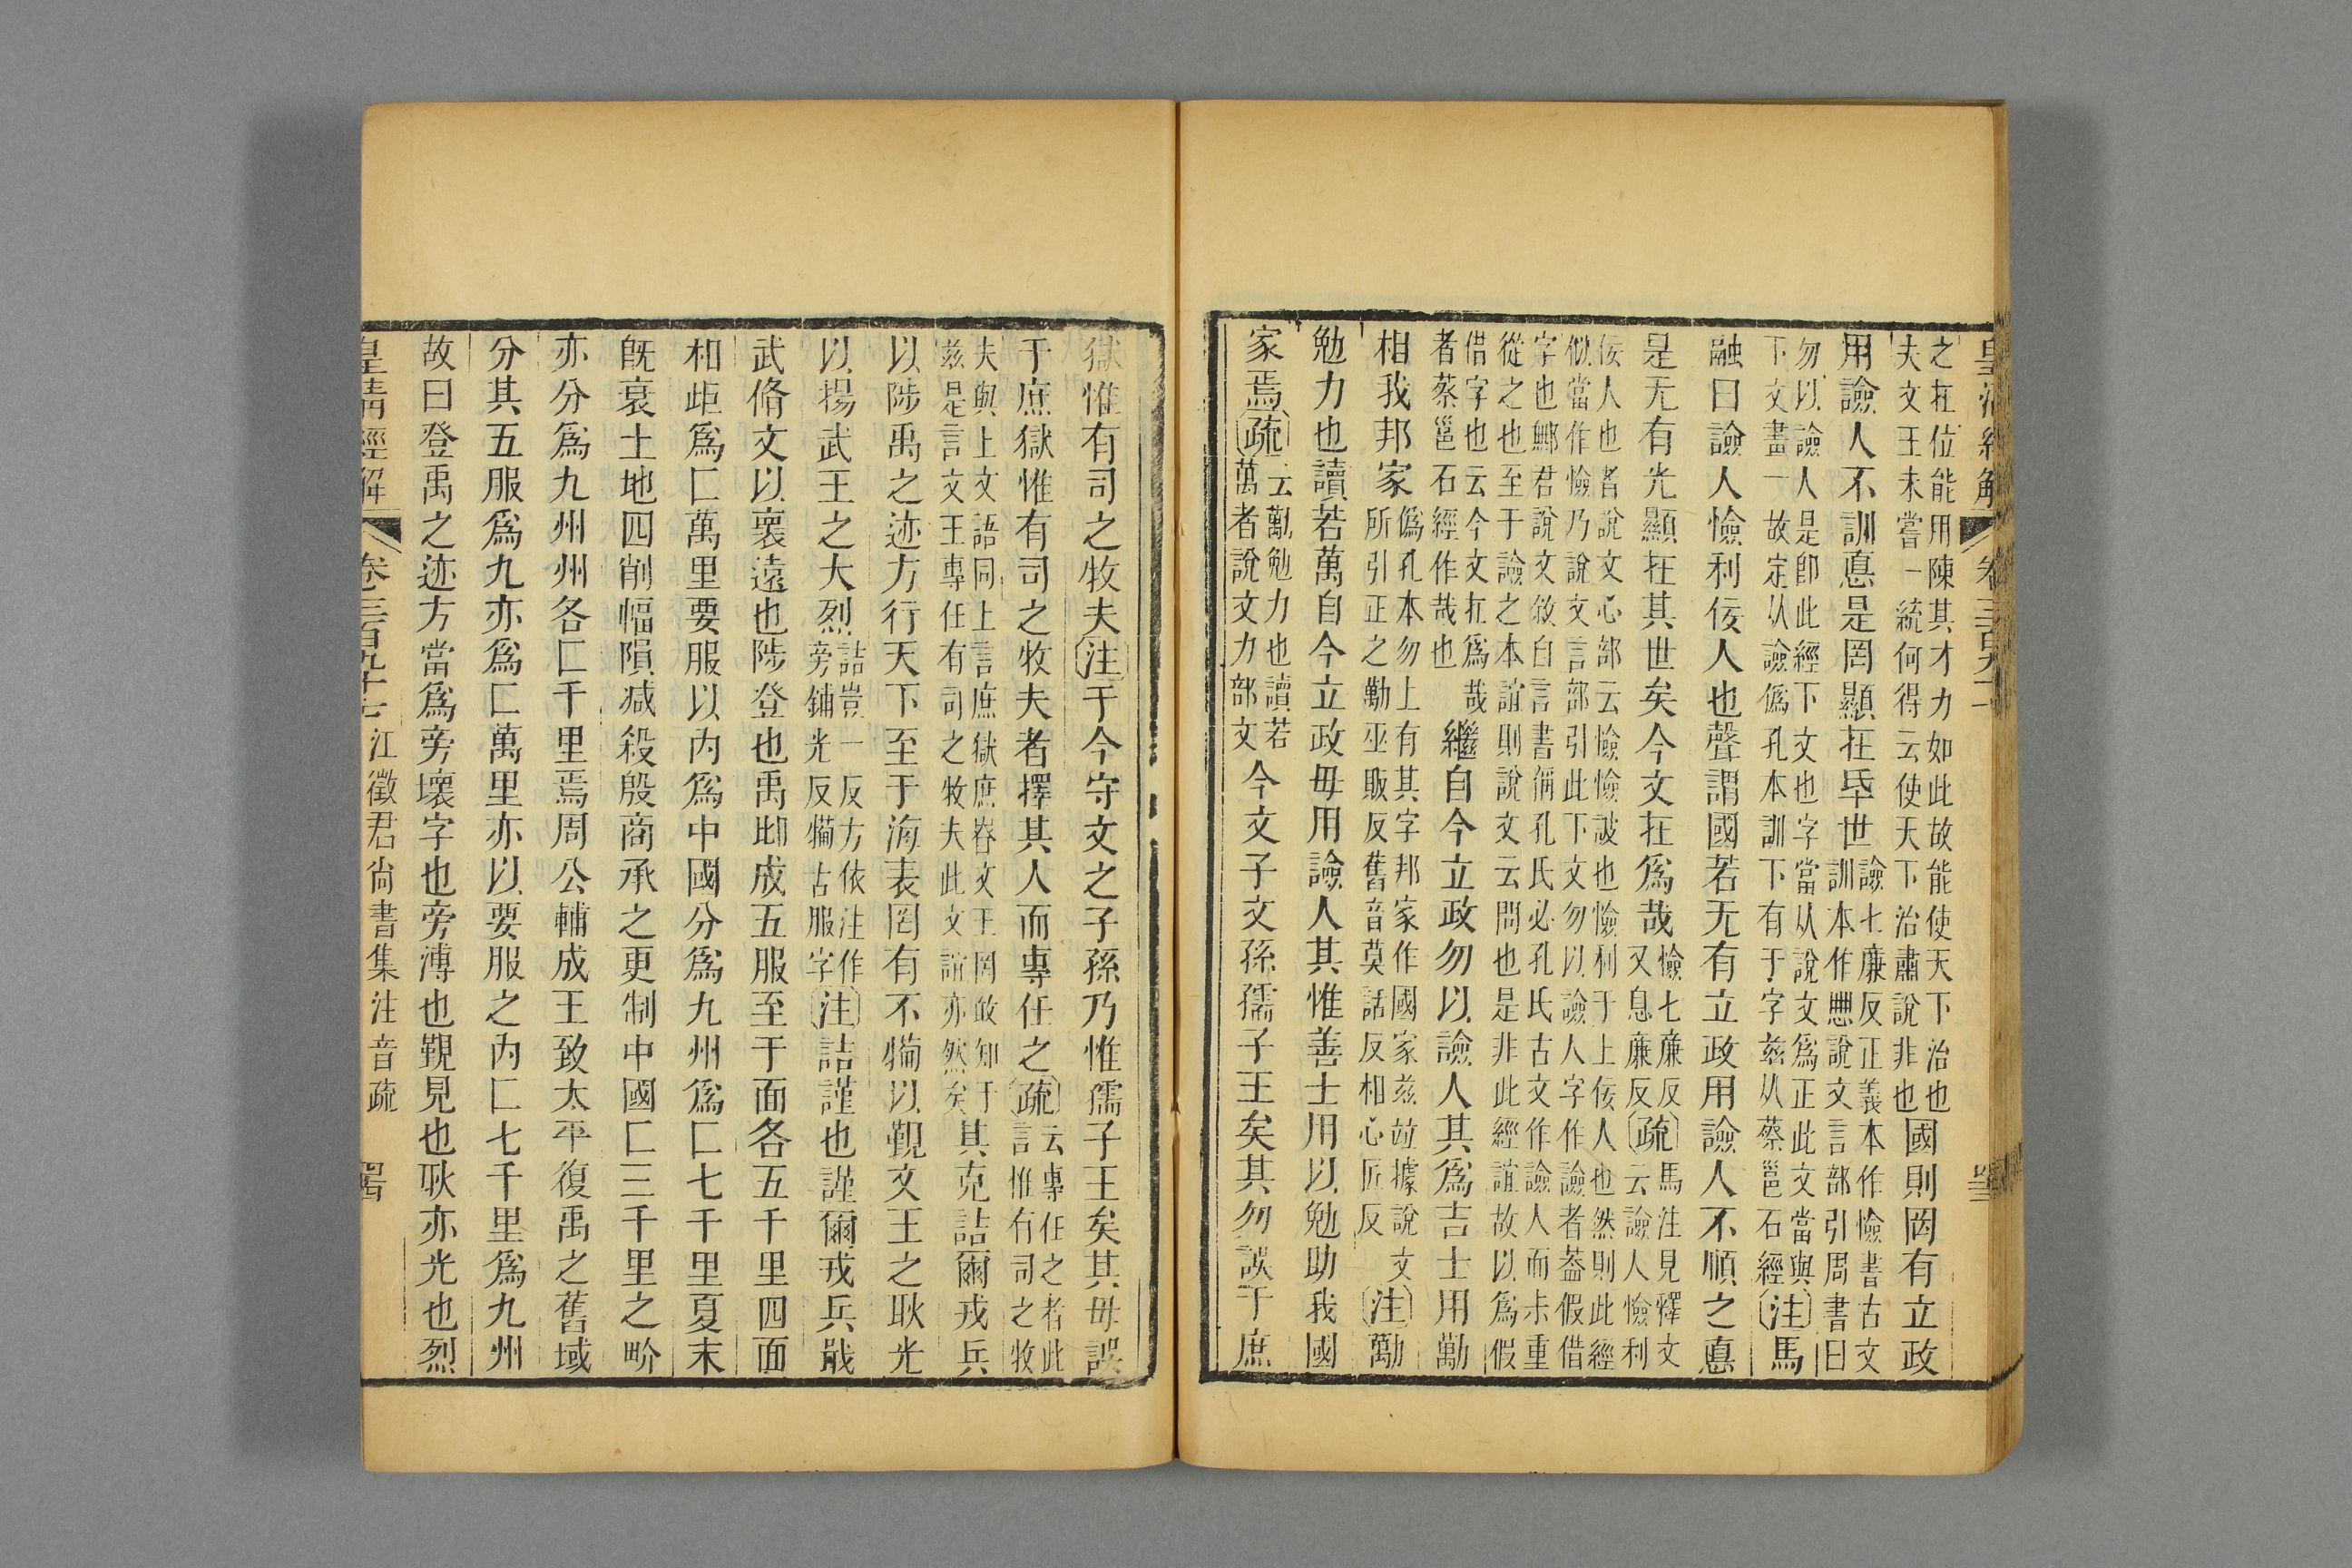 皇清經解 卷三百九十
之在位能用陳其才力如此故能使天下治也
夫文王未嘗一統何得云使天下治肅說非也
國則罔有立政
用譣人不訓悳是罔顯在厥世
譣七廉反正義本作憸書古文
訓本作㥽說文言部引周書曰
勿以譣人是卽此經下文也字當从說文爲正此文當與
下文畫一故定从譣僞孔本訓下有于字玆从蔡邕石經
注馬
融曰譣人憸利佞人也聲謂國若无有立政用譣人不順之悳
是无有光顯在其世矣今文在爲哉
憸七廉反
又息廉反
疏
馬注見釋文
云譣人憸利
佞人也者說文心部云憸憸詖也憸利于上佞人也然則此經
似當作憸乃說文言部引此下文勿以譣人字作譣者葢假借
字也鄦君說文敘自言書偁孔氏必孔氏古文作譣人而未重
從之也至于譣之本誼則說文云問也是非此經誼故以爲假
借字也云今文在爲哉
者蔡邕石經作哉也
繼自今立政勿以譣人其爲吉士用勱
相我邦家
僞孔本勿上有其字邦家作國家玆竝據說文
所引正之勱巫販反舊音莫話反相心匠反
注勱
勉力也讀若萬自今立政毋用譣人其惟善士用以勉助我國
家焉疏
云勱勉力也讀若
萬者說文力部文
今文子文孫孺子王矣其勿誤于庶
獄惟有司之牧夫注于今守文之子孫乃惟孺子王矣其毋誤
于庶獄惟有司之牧夫者擇其人而專任之疏
云專任之者此
言惟有司之牧
夫與上文語同上言庶獄庶㕢文王罔敢知于
玆是言文王專任有司之牧夫此文誼亦然矣
其克詰爾戎兵
以陟禹之迹方行天下至于海表罔有不犕以覲文王之耿光
以揚武王之大烈
詰豈一反方依注作
旁鋪光反犕古服字
注詰謹也謹爾戎兵戢
武脩文以褱遠也陟登也禹卽成五服至于面各五千里四面
相歫爲匚萬里要服以內爲中國分爲九州爲匚七千里夏末
旣衰土地四削幅隕減殺殷商承之更制中國匚三千里之畍
亦分爲九州州各匚千里焉周公輔成王致太平復禹之舊域
分其五服爲九亦爲匚萬里亦以要服之內匚七千里爲九州
故曰登禹之迹方當爲旁壞字也旁溥也覲見也耿亦光也烈
皇清經解 卷三百九十七 江徵君尙書集注音疏